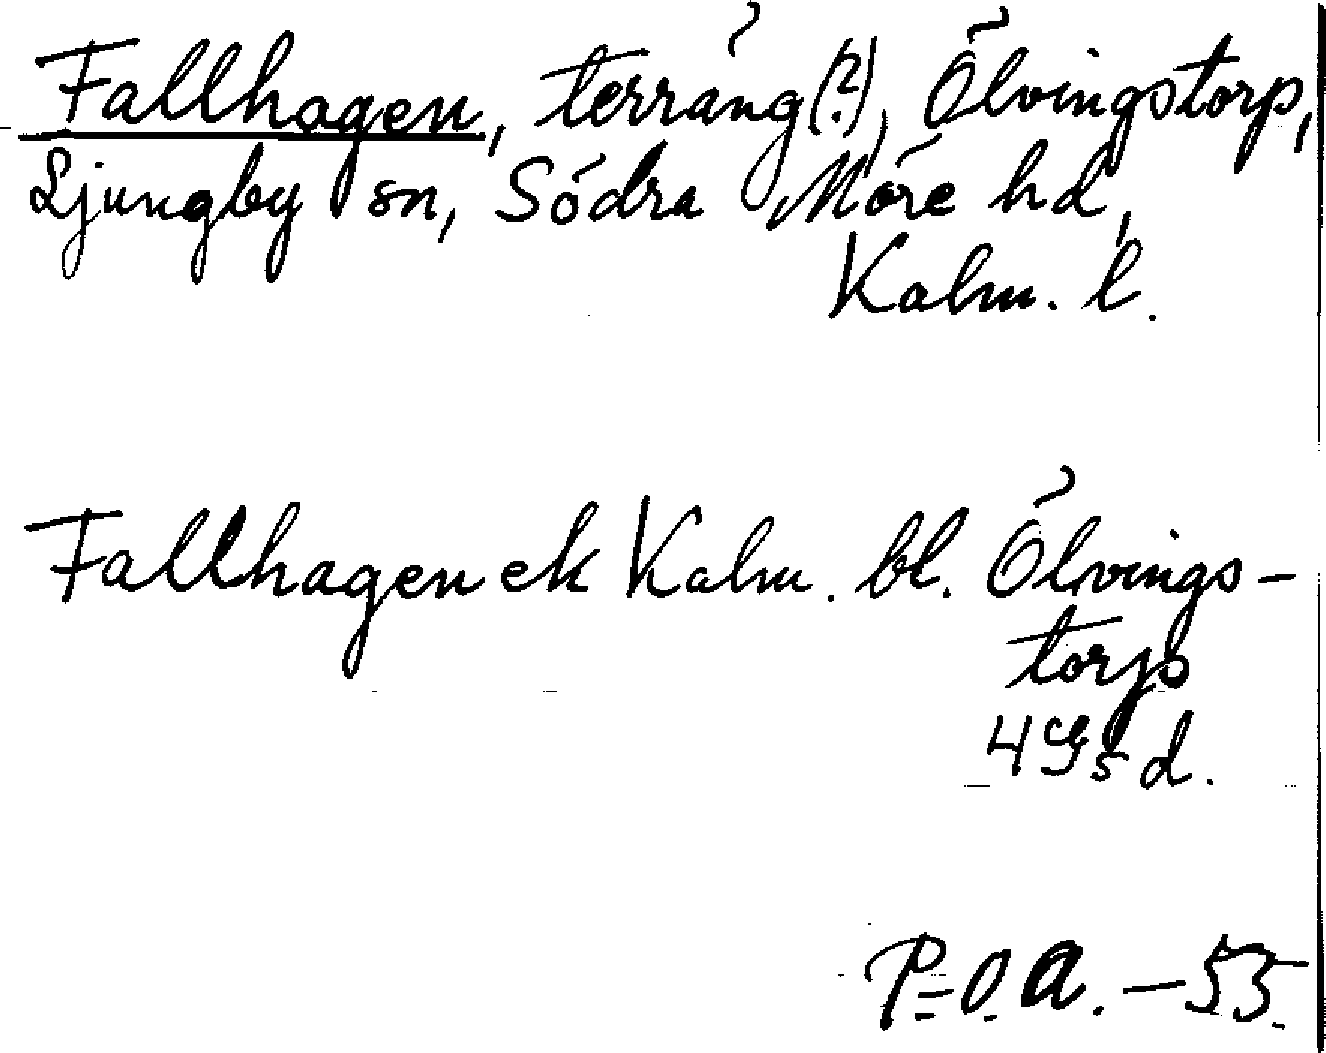 Fallhagen, terräng(?), Ölvingstorp,
Ljungby sn, Södra Möre hd,
Kalm. l.
Fallhagen ek Kalm. bl. Ölvings-
torp
4G5d.
P.O.A. - 55.